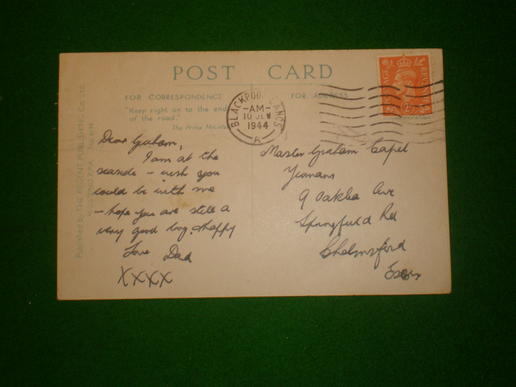 POST CARD
FOR CORRESPONDENCE
FOR ADDRESS
"Keep right on to the end
of the road."
The Prime Minister
BLACKPOOL LANCS
-AM-
10
1944
A
POSTAGE
Dear Graham,
I am at the
seaside - wish you
could be with me
- hope you are still a
very good boy. & happy
Love Dad
XXXX
Master Graham Capel
9 Oaklea Ave
Springfield Rd
Chelmsford
Essex
Published by THE PHOTOCHROM Co. Ltd.